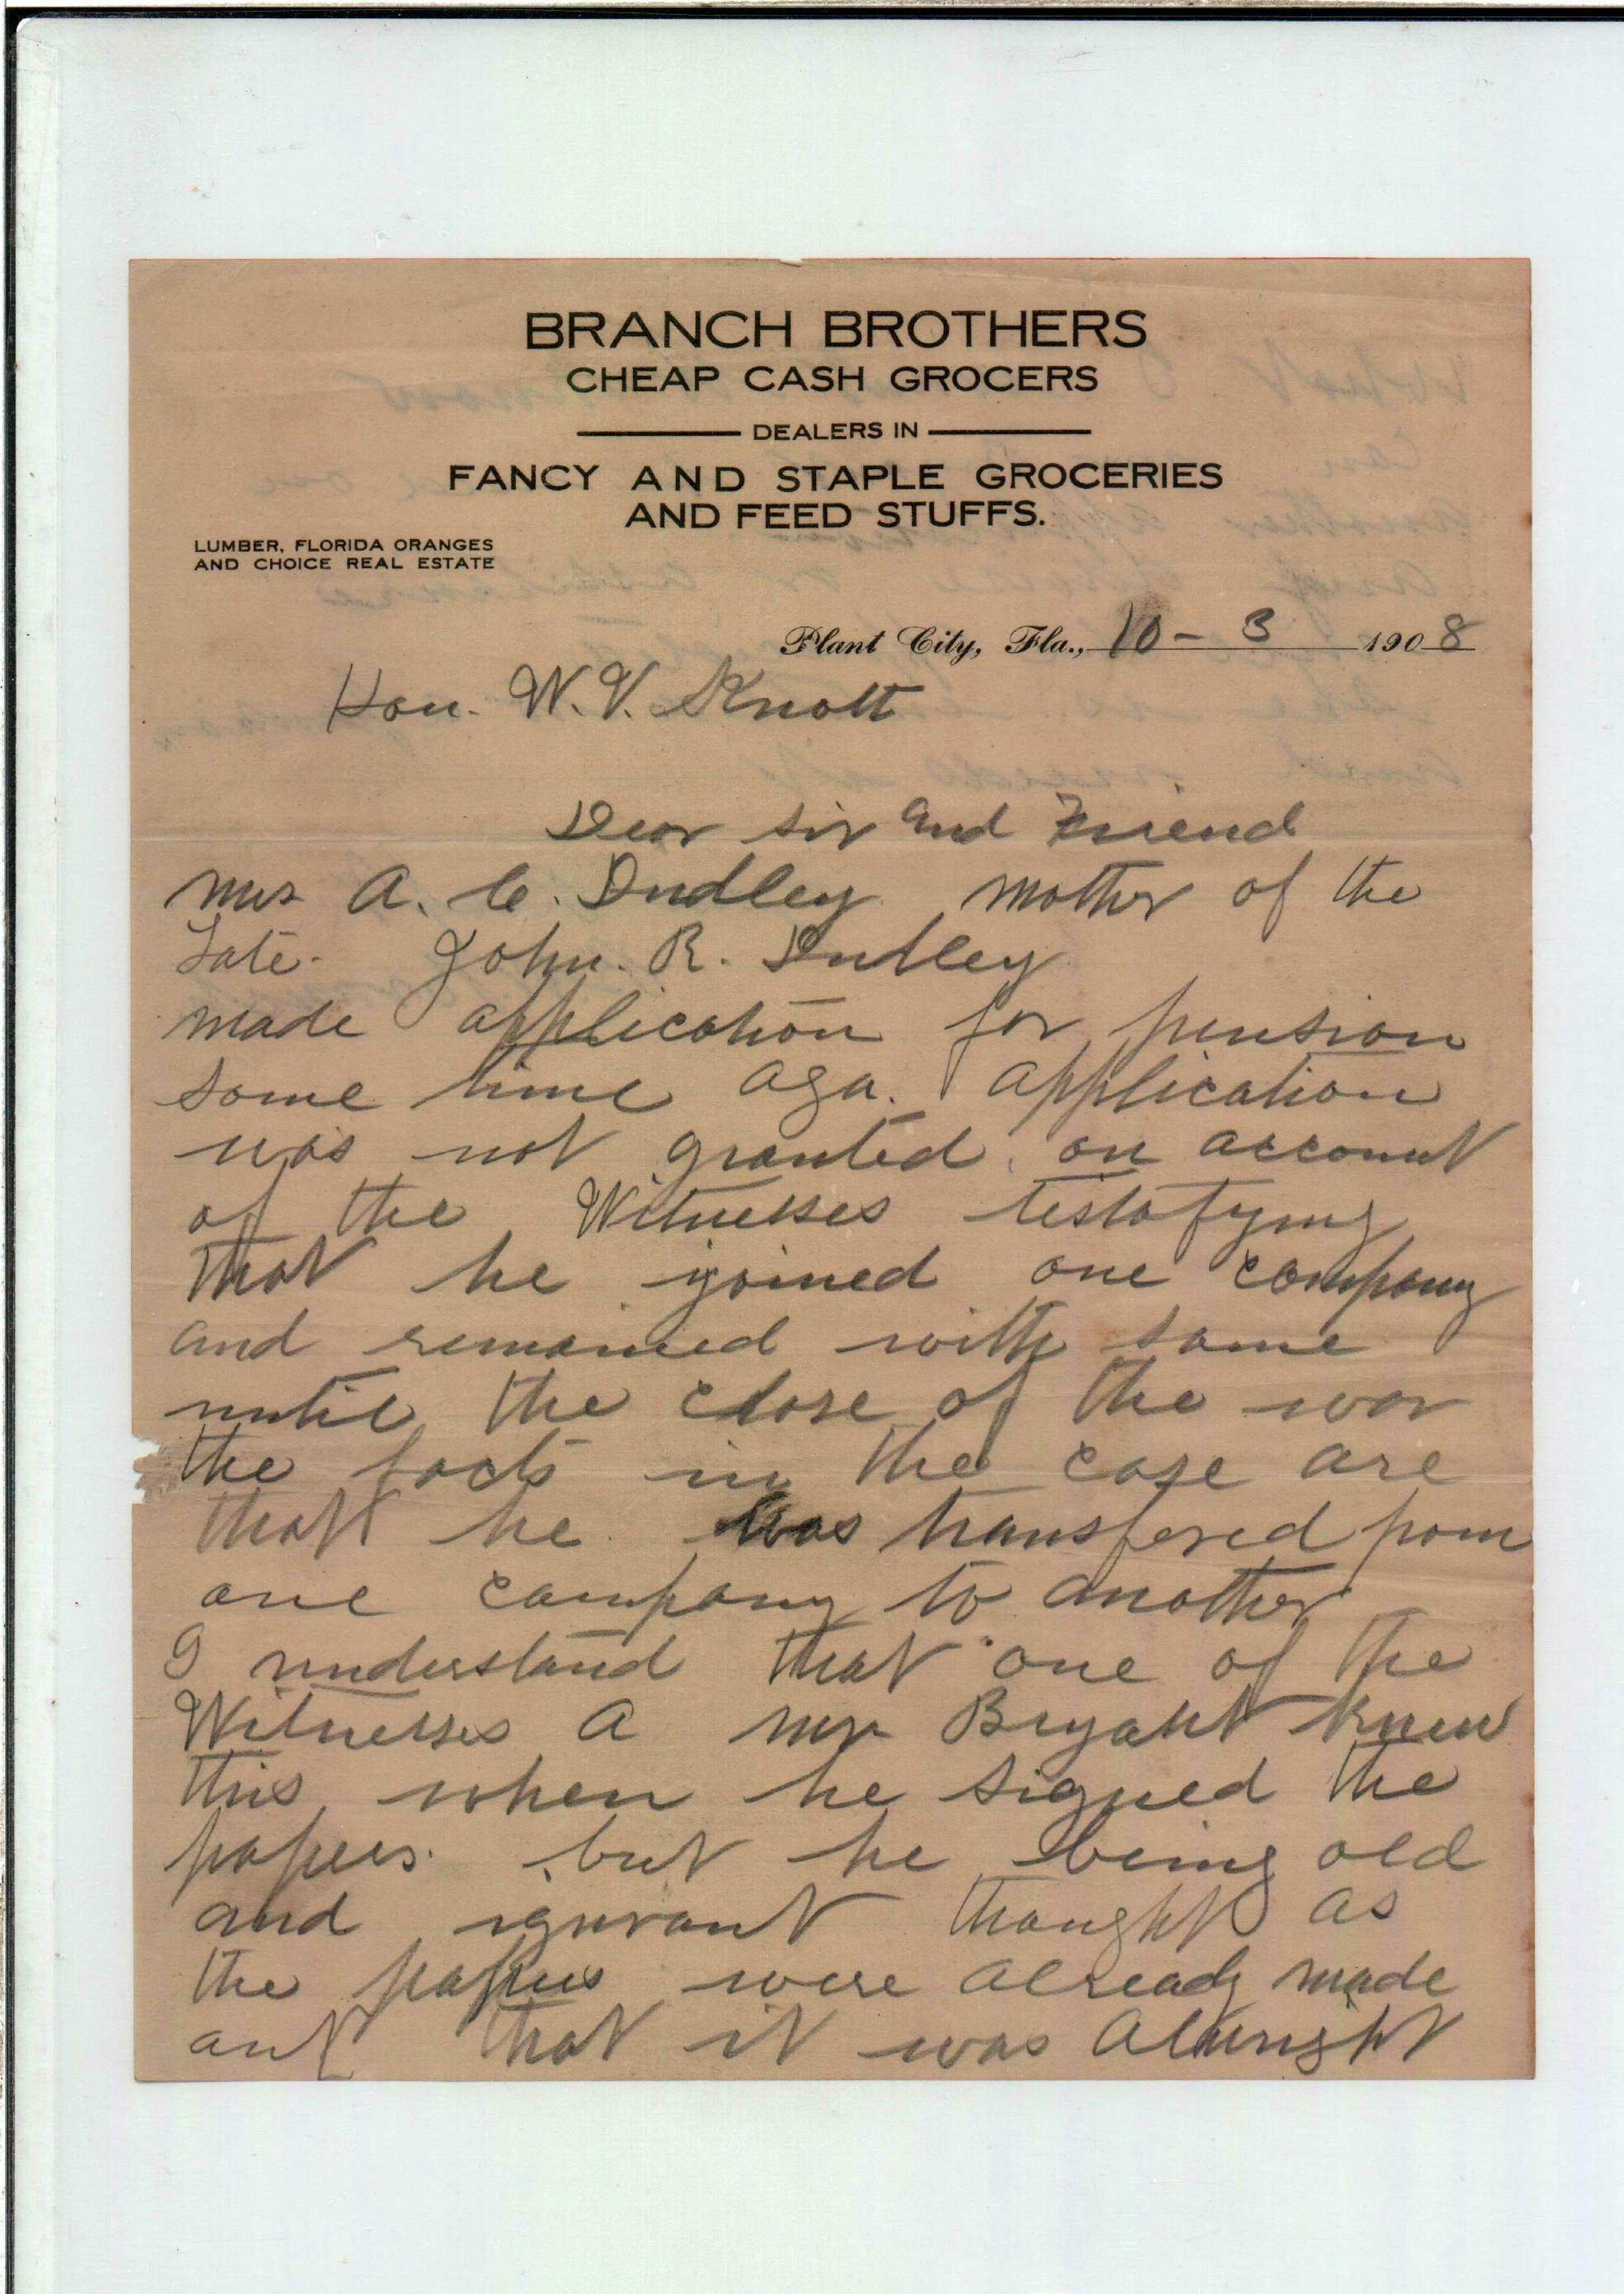 BRANCH BROTHERS
CHEAP CASH GROCERS
DEALERS IN
FANCY AND STAPLE GROCERIES
AND FEED STUFFS.
LUMBER, FLORIDA ORANGES
AND CHOICE REAL ESTATE
Plant City, Fla., 10-3 1908
Hon. W.V. Knott
Dear sir and Friend
Mrs A. C. Dudley mother of the
Late. John. R. Dudley
made application for pension
some time ago. application
was not granted. on account
of the Witnesses testafying
that he joined one company
and remained with same
until the close of the war
the facts in the case are
that he was transfered from
one company to another
I understand that one of the
Witnesses a Mr Bryant knew
this when he signed the
papers. but he being old
and ignorant thought as
the papers were already made
out that it was alright